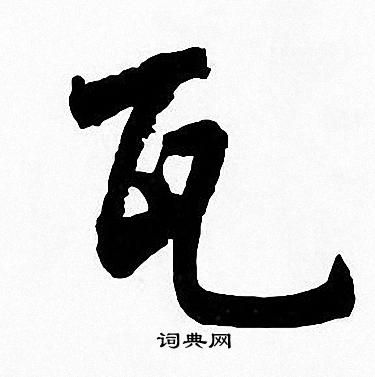 瓦
词典网